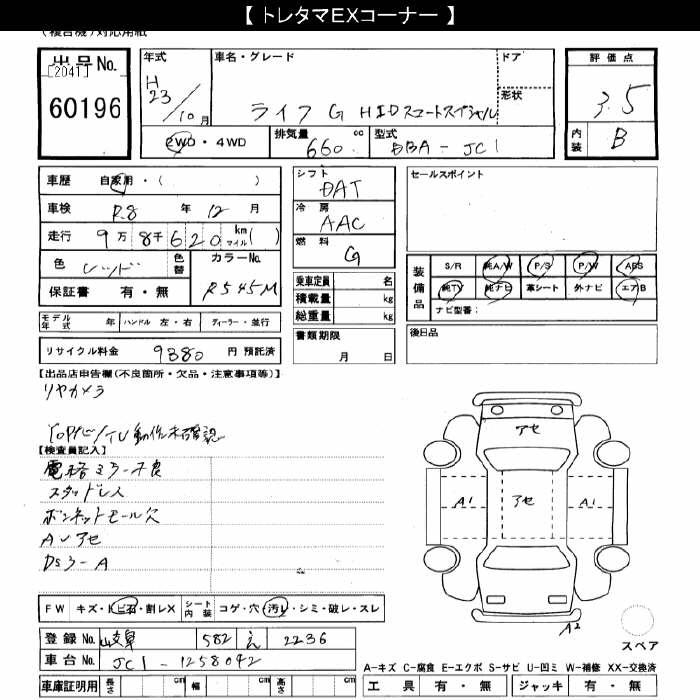 【 トレタマEXコーナー 】
(複合機)対応用紙
出品No.
[2041]
60196
年式
H23/10月
車名・グレード
ライフ G HIDスマートスペシャル
ドア
形状
評価点
3.5
内装 B
2WD・4WD
排気量 660 cc
型式 DBA-JC1
車歴 自家用・( )
車検 R.8 年 12 月
走行 9万 8千 620 km マイル( )
色 レッド 色替
カラーNo. R545M
保証書 有・無
シフト DAT
冷房 AAC
燃料 G
乗車定員 名
積載量 kg
総重量 kg
書類期限
月 日
セールスポイント
装備品
S/R 純A/W P/S P/W ABS
純TV 純ナビ 革シート 外ナビ エアB
ナビ型番:
後日品
モデル年式 年 ハンドル 左・右 ディーラー・並行
リサイクル料金 9380 円 預託済
【出品店申告欄(不良箇所・欠品・注意事項等)】
リヤカメラ
TV動作未確認
【検査員記入】
電格ミラー不良
スタッドレス
ボンネットモール欠
AVアセ
DSミラーA
FW キズ・トビ石・割レX
シート内装 コゲ・穴・汚レ・シミ・破レ・スレ
登録No. 岐阜 582 え 2236
車台No. JC1-1258042
車庫証明用 長さ cm 幅 cm 高さ cm
アセ
A1
アセ
A1
A2
スペア
A-キズ C-腐食 E-エクボ S-サビ U-凹ミ W-補修 XX-交換済
工具 有・無 ジャッキ 有・無